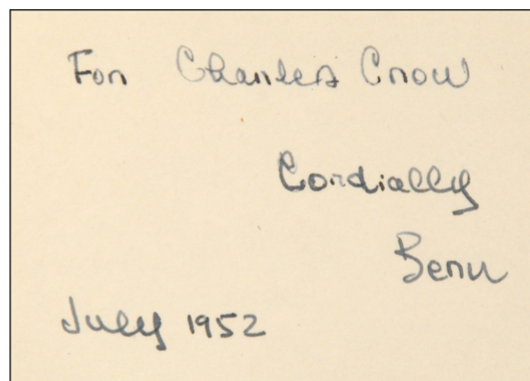 For Charles Crow
Cordially
Benn
July 1952